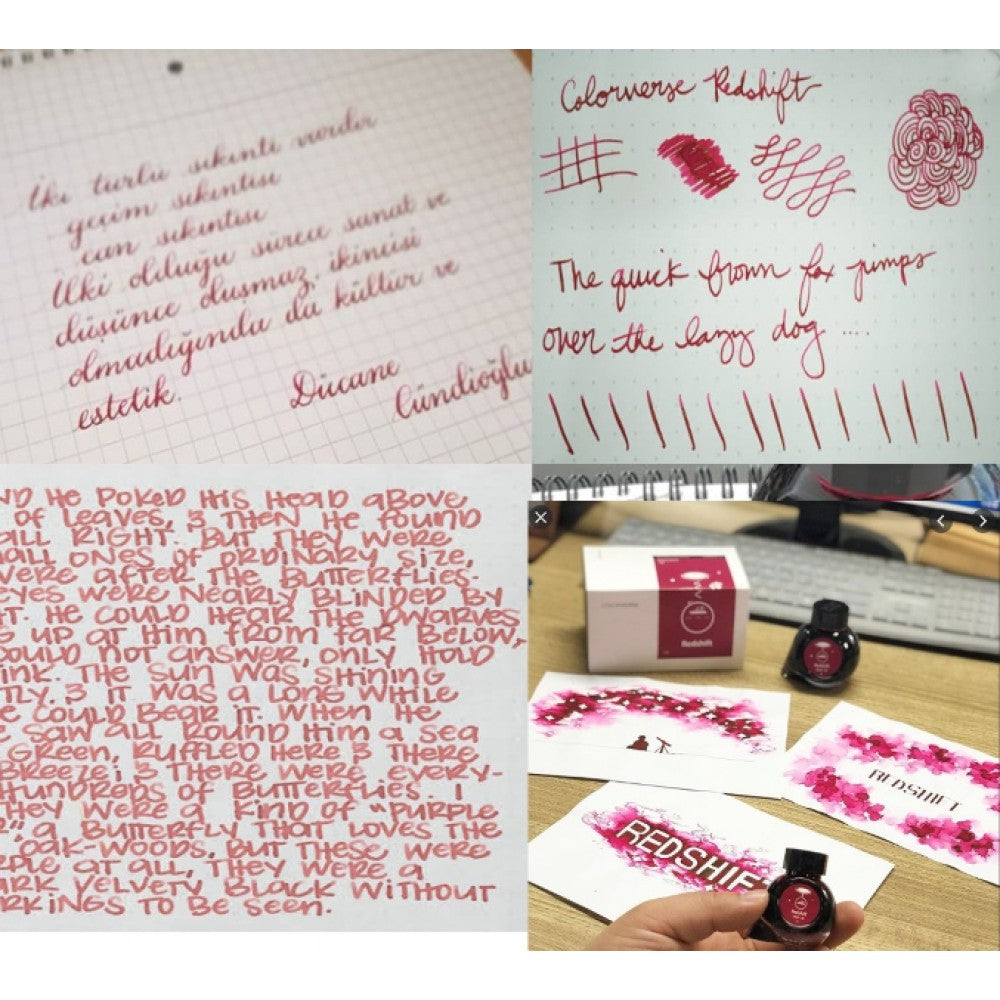 İki türlü sıkıntı vardır
geçim sıkıntısı
can sıkıntısı
İlki olduğu sürece sanat ve
düşünce oluşmaz, ikincisi
olmadığında da kültür ve
estetik.
Dücane
Cündioğlu
Colorverse Redshift
The quick frown fox jumps
over the lazy dog ....
ND HE POKED HIS HEAD ABOVE
OF LEAVES, 3 THEN HE FOUND
ALL RIGHT. BUT THEY WERE
ALL ONES OF ORDINARY SIZE,
WERE AFTER THE BUTTERFLIES.
EYES WERE NEARLY BLINDED BY
T. HE COULD HEAR THE DWARVES
G UP AT HIM FROM FAR BELOW,
COULD NOT ANSWER, ONLY HOLD
INK. THE SUN WAS SHINING
TLY. 3 IT WAS A LONG WHILE
E COULD BEAR IT. WHEN HE
E SAW ALL ROUND HIM A SEA
GREEN, RUFFLED HERE 3 THERE
BREEZE; 3 THERE WERE, EVERY-
HUNDREDS OF BUTTERFLIES. I
THEY WERE A KIND OF "PURPLE
R", A BUTTERFLY THAT LOVES THE
OAK-WOODS, BUT THESE WERE
RPLE AT ALL, THEY WERE A
ARK VELVETY BLACK WITHOUT
RKINGS TO BE SEEN.
Redshift
Redshift
REDSHIFT
REDSHIF
Redshift